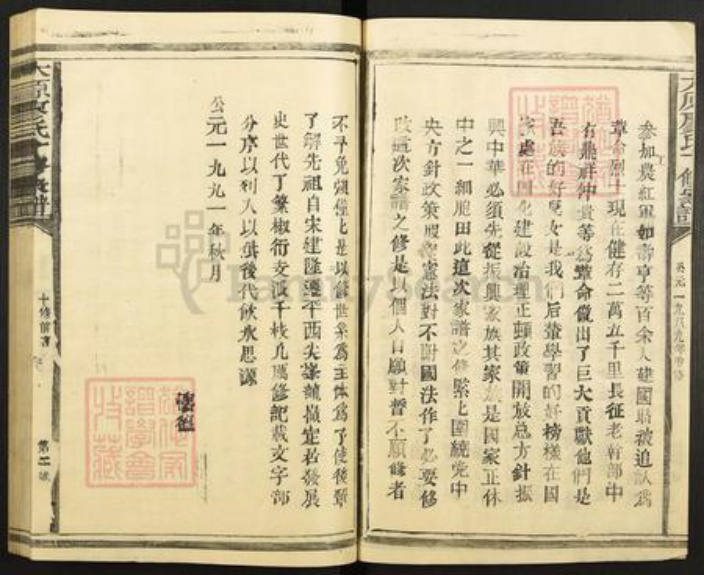 參加農紅軍如壽亨等百余人建國時被追認為
革命烈士現在健存二萬五千里長征老幹部中
有鼎祥仲貴等為革命做出了巨大貢獻他們是
吾族的好兒女是我們后輩學習的好榜樣在國
家處在四化建設治理正頓政策開放总方針振
興中華必須先從振興家族其家族是國家正体
中之一細胞田此這次家譜之修緊上圍統党中
央方針政策服從憲法對不附國法作了必要修
改這次家譜之修是以個人自願對誓不願修者
不予免強僅上是以修世業為主体為了使後輩
了解先祖自宋建隆遷平西尖峰
史世代丁繁椒衍支波千枝凡屬修記載文字部
分序以利人以供後代飲水思源
公元一九九一年秋月
大原
氏十修家譜
十修前言
第二號
公元一九八九年
FamilySearch
收藏
譜學會